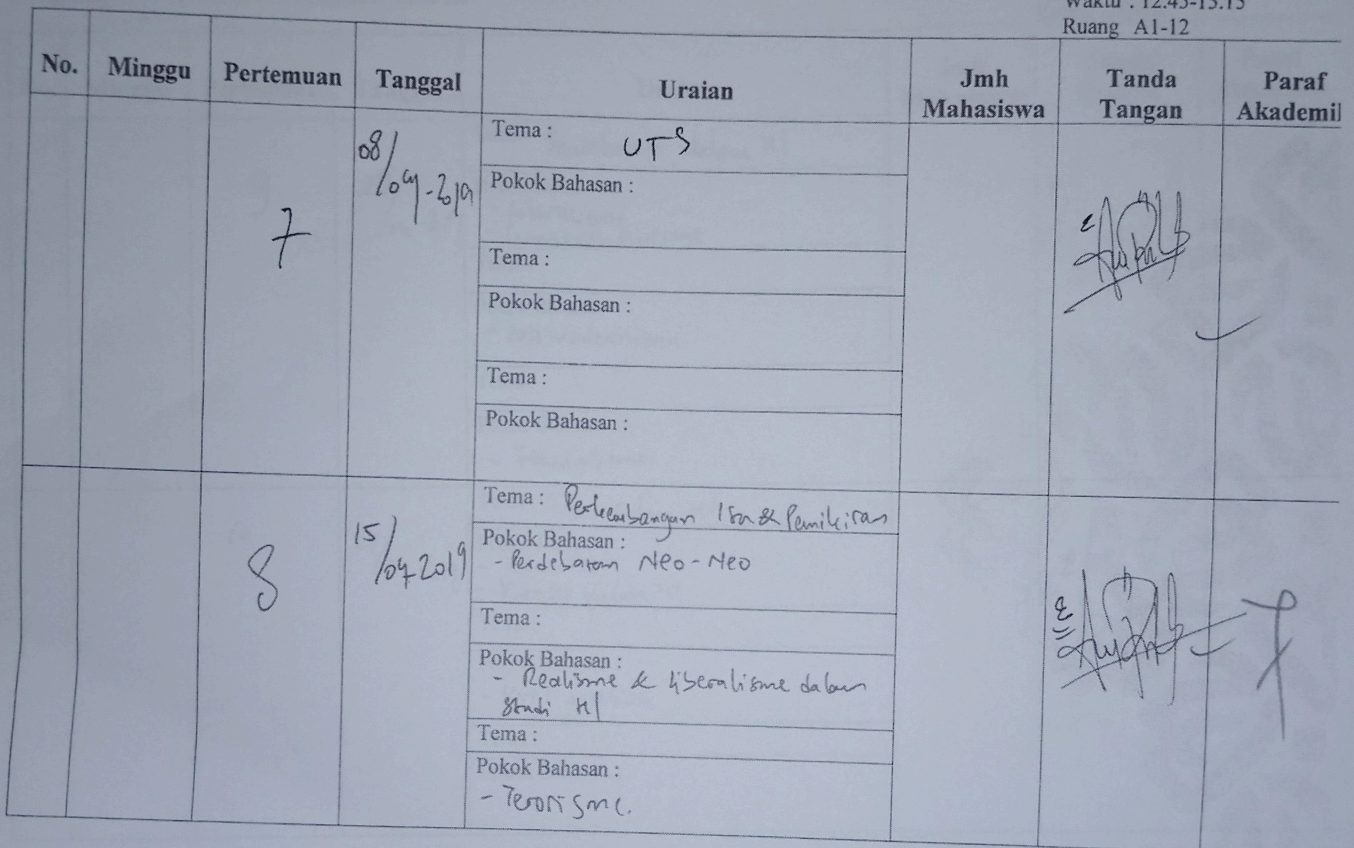 Waktu : 12.45-15.15
Ruang A1-12
No. Minggu Pertemuan Tanggal Uraian Jmh Mahasiswa Tanda Tangan Paraf Akademil
7 08/04-2019 Tema : UTS
Pokok Bahasan :
Tema :
Pokok Bahasan :
Tema :
Pokok Bahasan :
8 15/04 2019 Tema : Perkembangan Isu & Pemikiran
Pokok Bahasan :
- Perdebatan Neo-Neo
Tema :
Pokok Bahasan :
- Realisme & liberalisme dalam
Studi HI
Tema :
Pokok Bahasan :
- Terorisme.